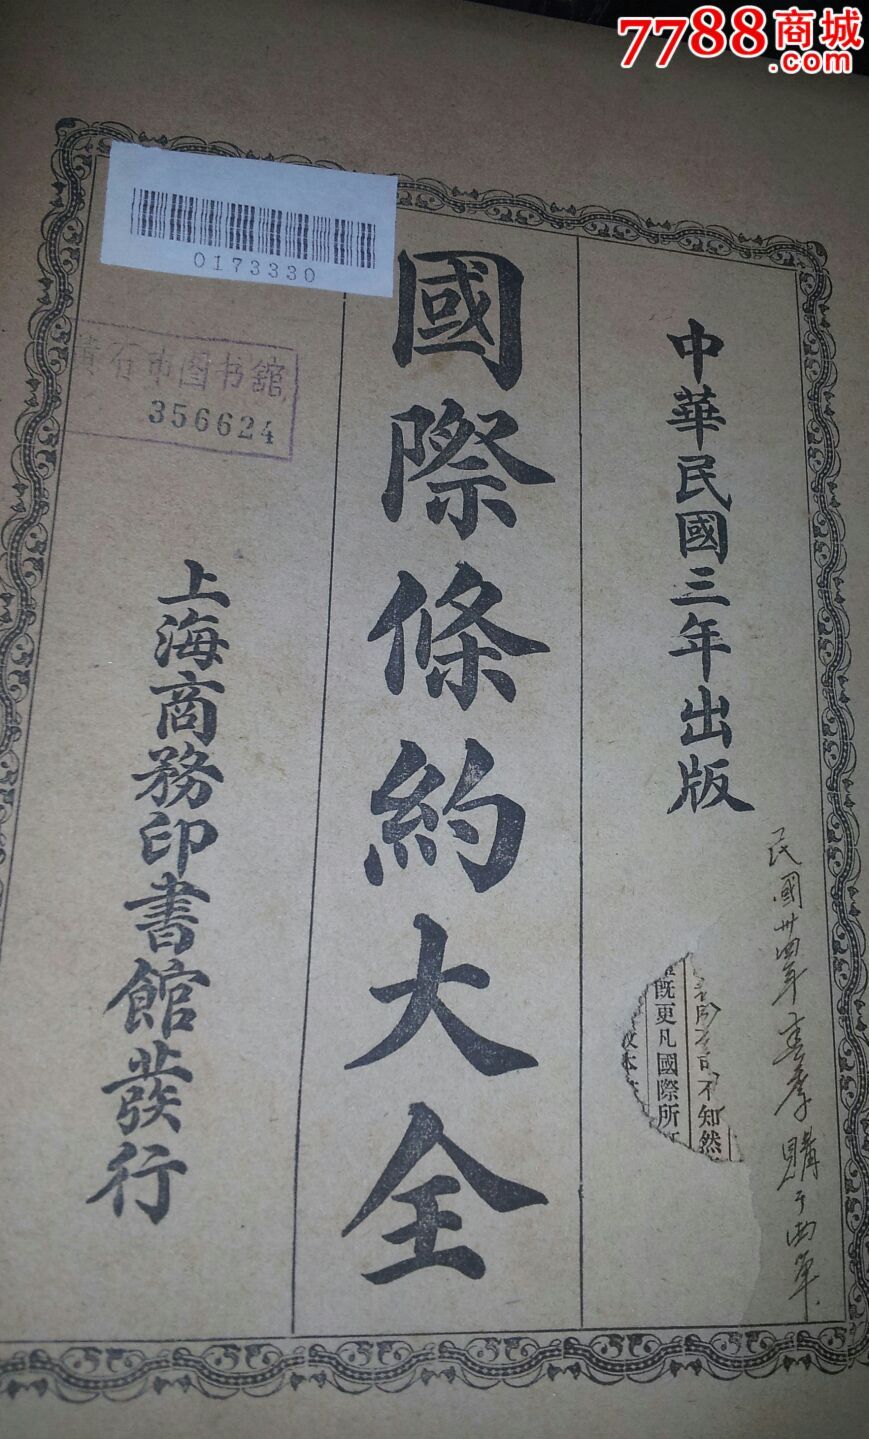 7788商城
.com
0173330
黄石市图书館
356624
中華民國三年出版
國際條約大全
上海商務印書館發行
民國卅四年春季購于西單
不知然
既更凡國際所
本